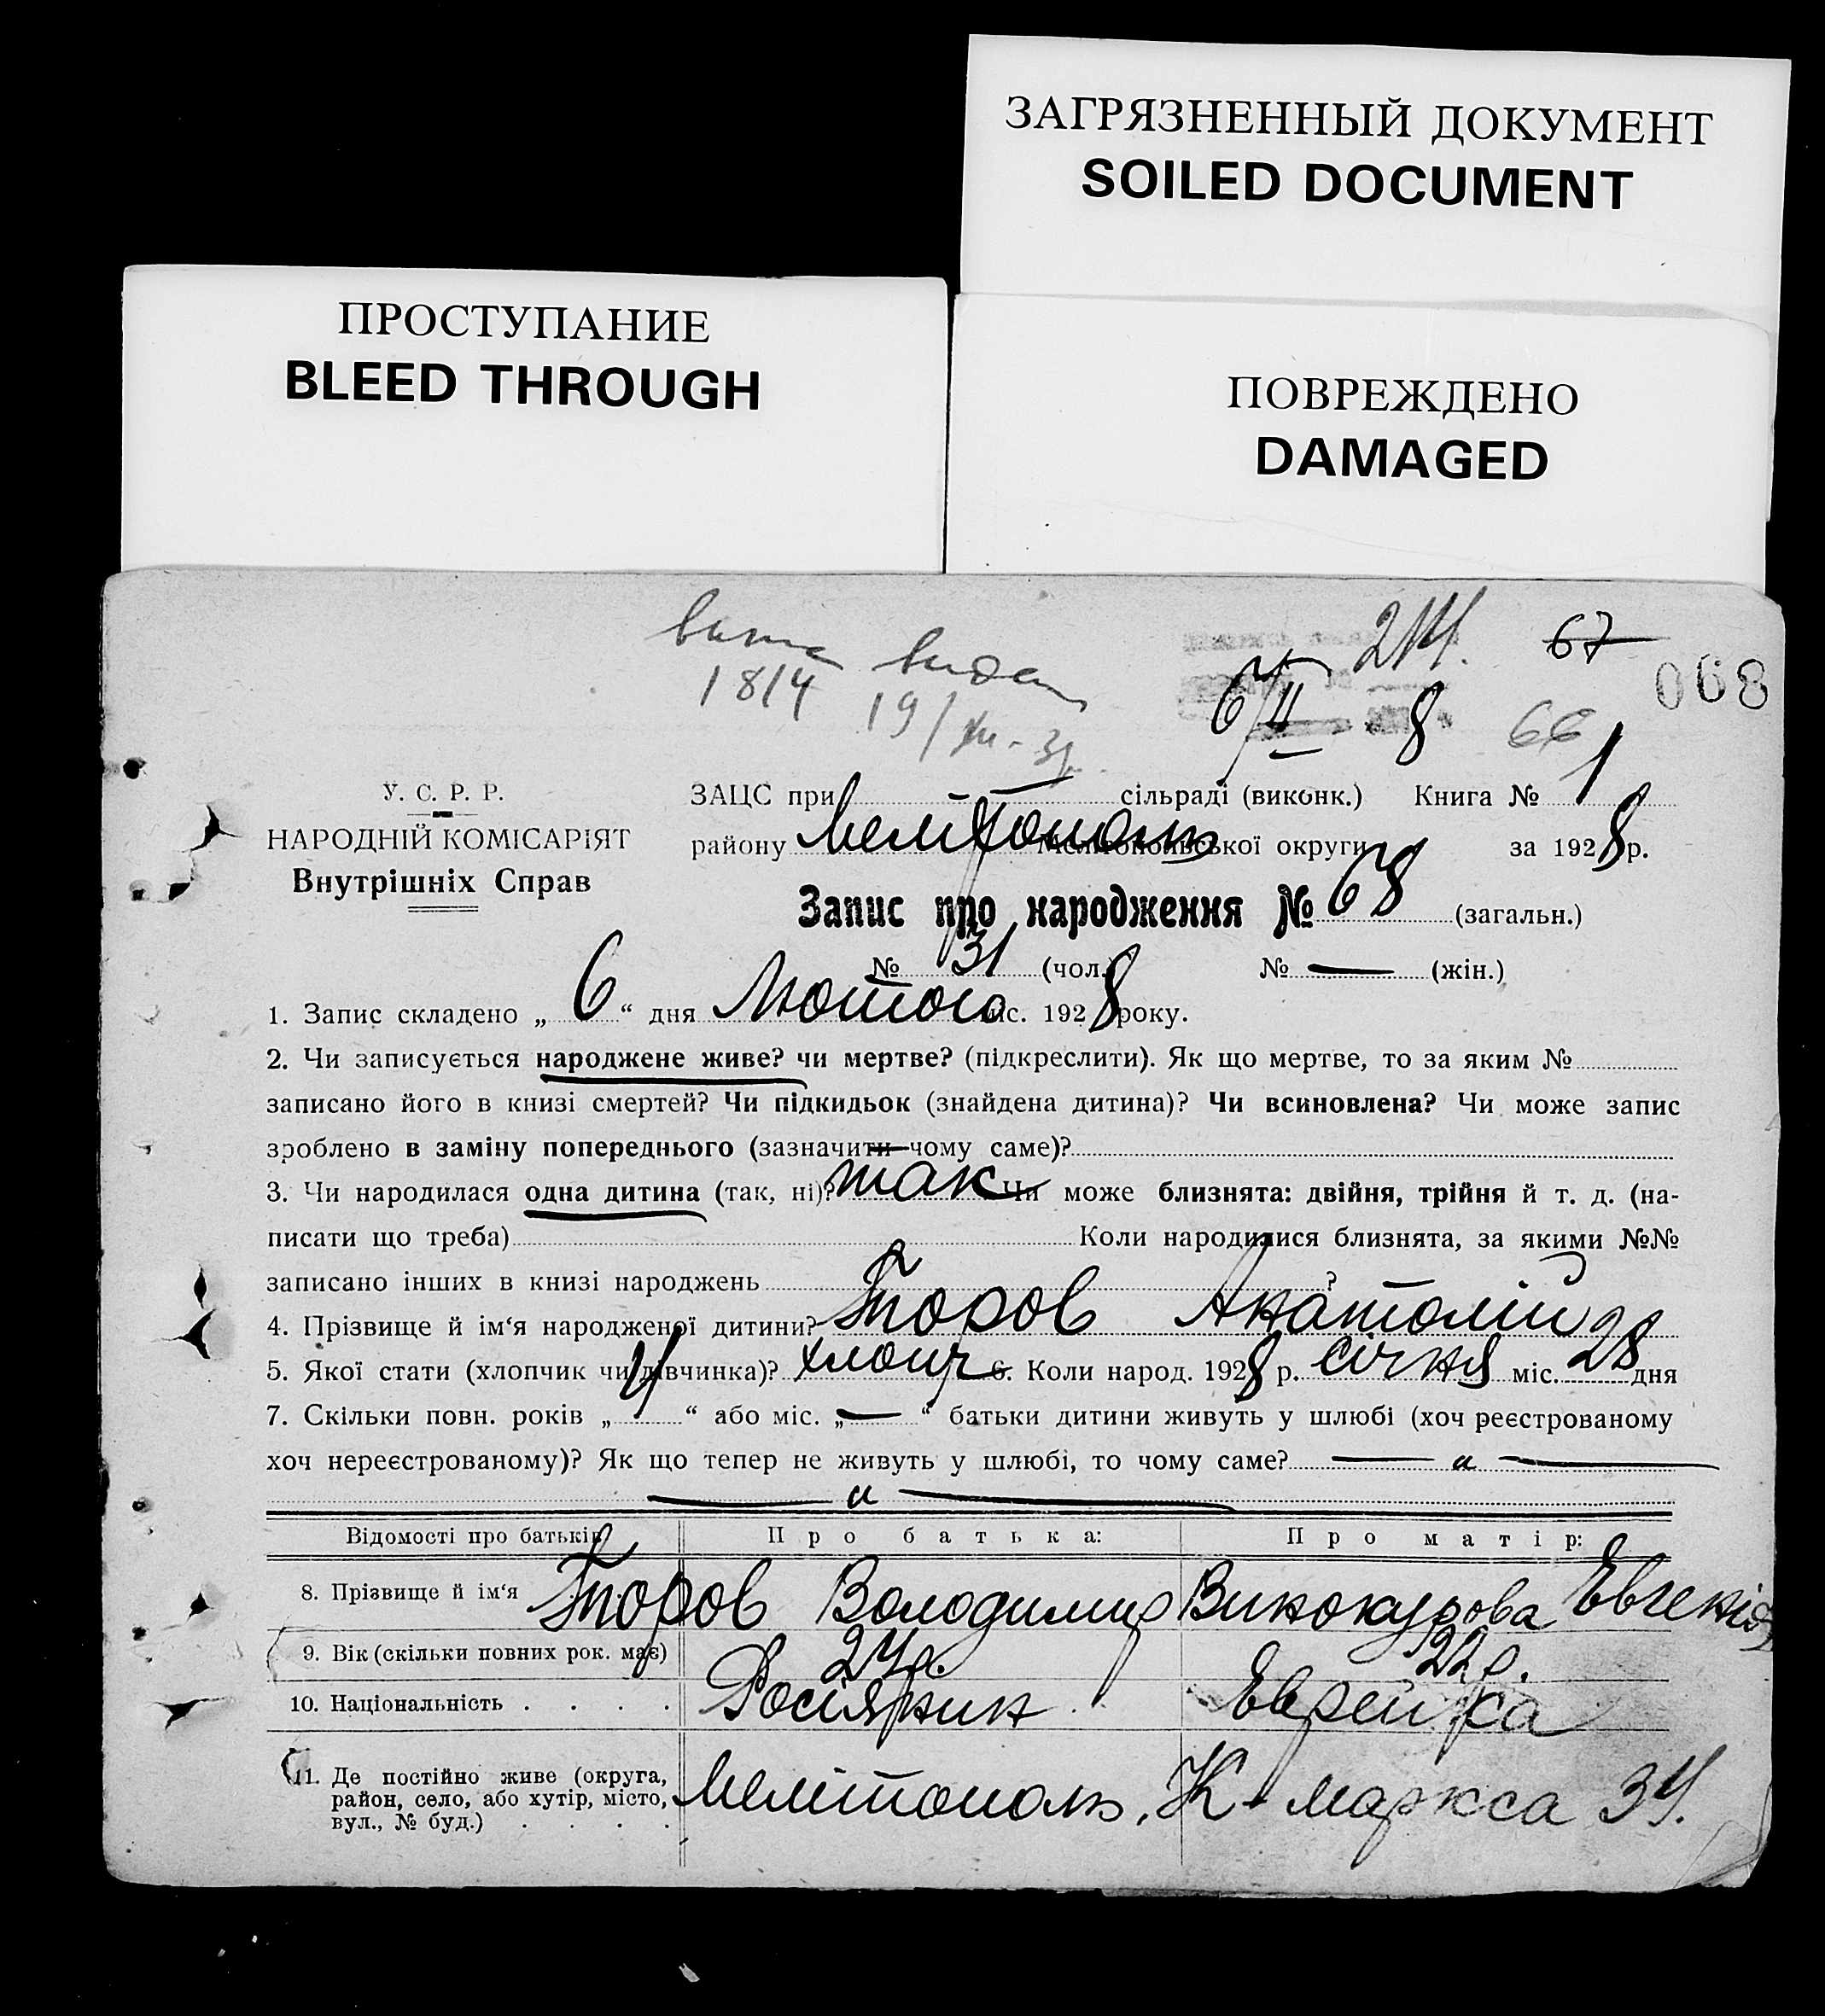 ЗАГРЯЗНЕННЫЙ ДОКУМЕНТ
SOILED DOCUMENT
ПРОСТУПАНИЕ
BLEED THROUGH
ПОВРЕЖДЕНО
DAMAGED
67
068
1814
19/
6/II 8
66
У. С. Р. Р.
НАРОДНІЙ КОМІСАРІЯТ
Внутрішніх Справ
ЗАЦС при сільраді (виконк.) Книга № 1
району Мелітополь Мелітопільської округи за 1928 р.
Запис про народження № 68 (загальн.)
№ 31 (чол.) № — (жін.)
1. Запис складено „ 6 “ дня Лютого міс. 1928 року.
2. Чи записується народжене живе? чи мертве? (підкреслити). Як що мертве, то за яким №
записано його в книзі смертей? Чи підкидьок (знайдена дитина)? Чи всиновлена? Чи може запис
зроблено в заміну попереднього (зазначити чому саме)?
3. Чи народилася одна дитина (так, ні)? так Чи може близнята: двійня, трійня й т. д. (на-
писати що треба) Коли народилися близнята, за якими №№
записано інших в книзі народжень ?
4. Прізвище й ім‘я народженої дитини? Анатолій
5. Якої стати (хлопчик чи дівчинка)? хлопч 6. Коли народ. 1928 р. січня міс. 28 дня
7. Скільки повн. років „ “ або міс. „ — “ батьки дитини живуть у шлюбі (хоч реєстрованому
хоч нереєстрованому)? Як що тепер не живуть у шлюбі, то чому саме? — „ —
— „ —
Відомості про батьків Про батька: Про матір:
8. Прізвище й ім‘я Володимир Винокурова Евгенія
9. Вік (скільки повних рок. має) 24 р. 22 р.
10. Національність . . . . Росіянин Еврейка
11. Де постійно живе (округа,
район, село, або хутір, місто,
вул., № буд.) . . . . Мелітополь, К. Маркса 34.